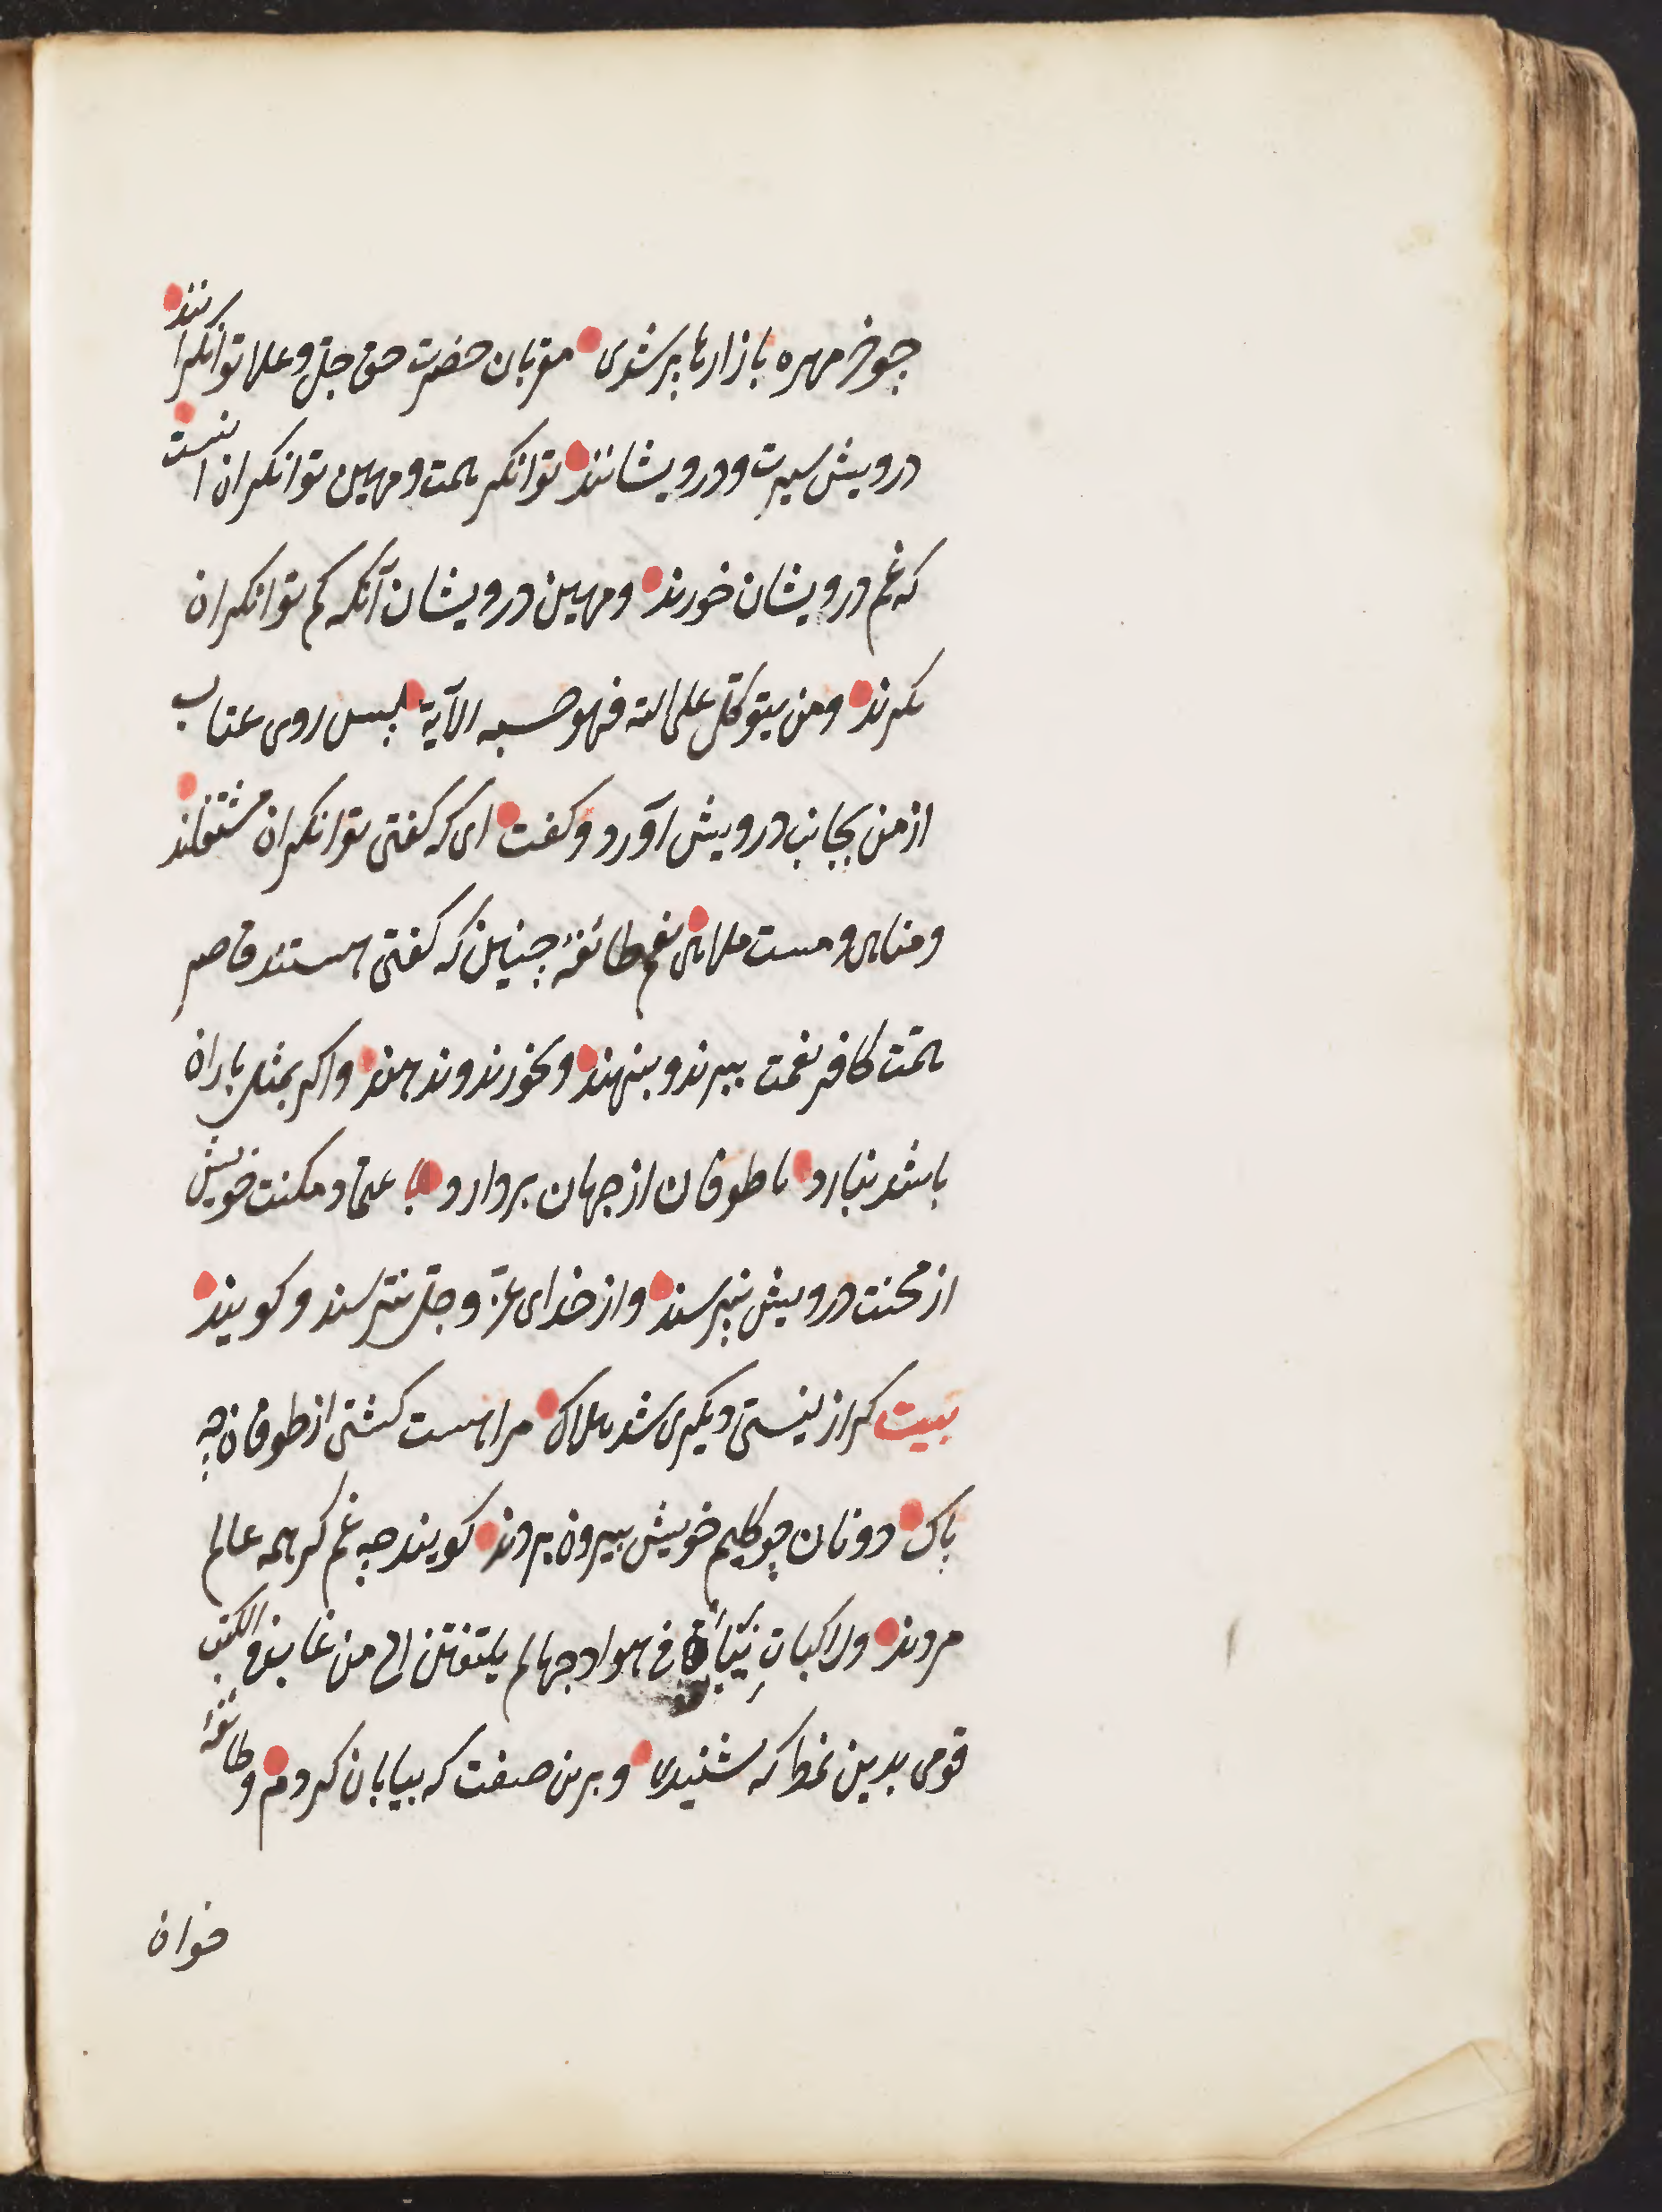 چو خر مهره بازارها پر شدی مقربان حضرت حق جلّ و علا توانگرانند
درویش سیرت و درویشانند توانکر همت و مهین توانکران انست
که غم درویشان خورند و مهین درویشان آنکه کم توانکران
کیرند ومن یتوکّل علی الله فهو حسبه الآیة پس روی عتاب
از من بجانب درویش آورد و کفت ای که کفتی توانکران مشتغلند
و مناهی و مست ملاهی نعم طائفهٔ چنین که کفتی هستند قاصر
همّت کافر نعمت ببرند و بنهند و نخورند و ندهند و اکر بمثل باران
باشد نبارد یا طوفان از جهان بردارد با عتماد مکنت خویش
از محنت درویش نپرسند و از خدای عزّ و جلّ نترسند و کویند
بیت کر از نیستی دیکری شد هلاک مرا هست کشتی از طوفان چه
باک دونان چو کلیم خویش بیرون بردند کویند چه غم کر همه عالم
مردند وراکباتِ نیاقٍ فی هوادجها لم یلتفتن الی من غاب فی الکتب
قومی بدین نمط که شنیدی و برین صفت که بیابان کردم و طائفهٔ
خوان